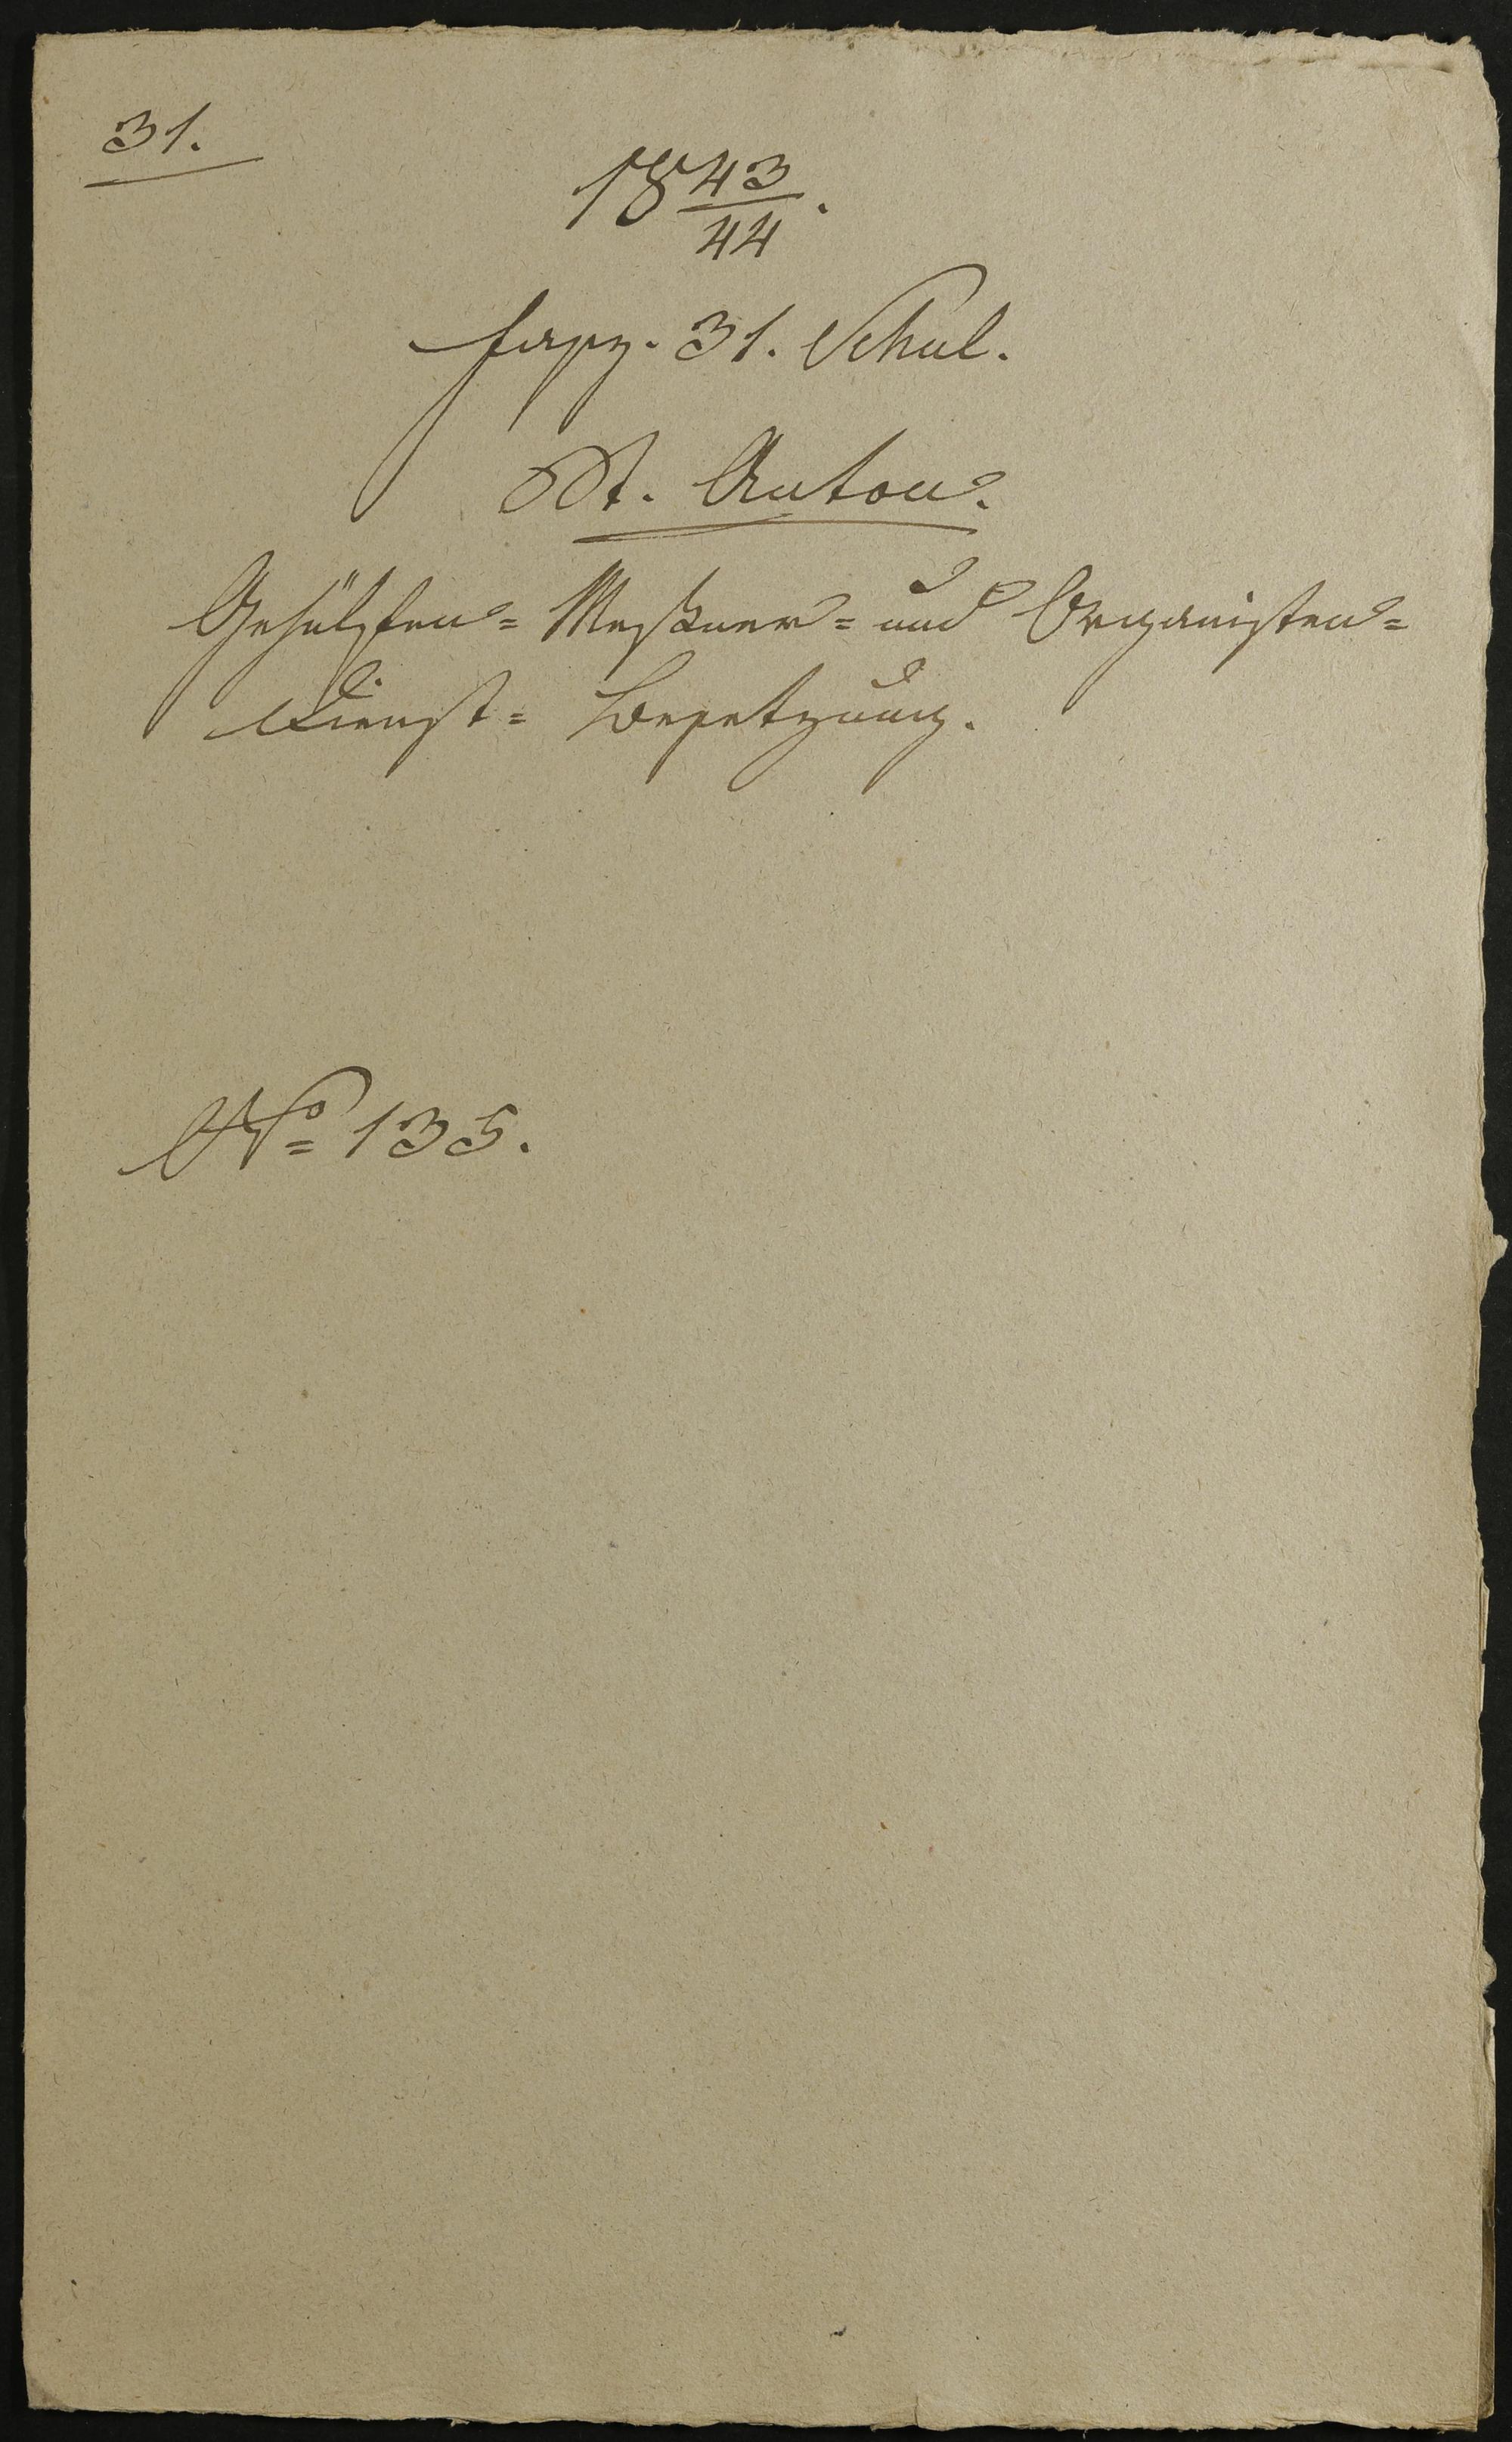 31.
18 43/44.
fasz. 31. Schul.
St. Anton.
Gehülfen= Meßner= und Organisten=
Dienst= Besetzung.
No= 135.